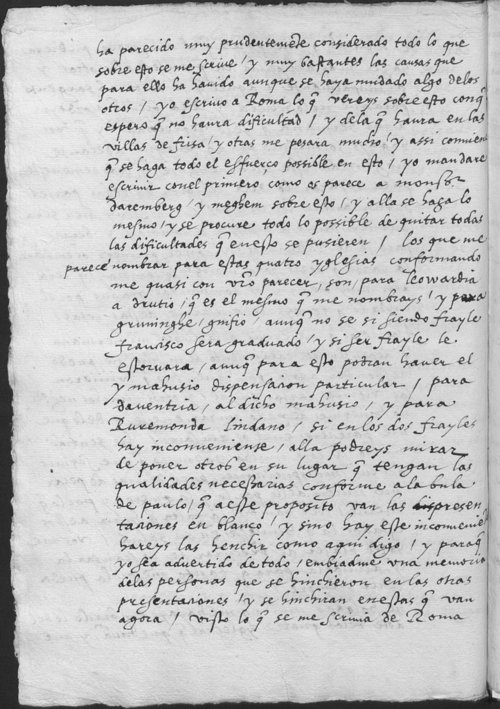 ha parecido muy prudentemēte considerado todo lo que
sobre esto se me scriue / y muy bastantes las causas que
para ello ha hauido aunque se haya mudado algo de los
otros / yo escriuo a Roma lo q̃ vereys sobre esto con q̃
espero q̃ no haura dificultad / y dela q̃ haura en las
villas de frisa / y otras me pesara mucho / y assi conuiene
q̃ se haga todo el esfuerço possible en esto / yo mandare
escriuir conel primero como os parece a mons.r
daremberg / y meghem sobre esto / y alla se haga lo
mesmo / y se procure todo lo possible de quitar todas
las dificultades q̃ enesto se pusieren / los que me
parece nombrar para estas quatro yglesias conformando
me quasi con v̄ro parecer, son, para leowardia
a drutio / q̃ es el mesmo q̃ me nombrays / y para
gruninghe, gnifio / aunq̃ no se si siendo frayle
francisco sera graduado / y si ser frayle le
estoruara / aunq̃ para esto podran hauer el
y mahusio dispensacion particular / para
dauentria / al dicho mahusio / y para
Ruremonda lindano / si en los dos frayles
hay inconueniente / alla podreys mirar
de poner otros en su lugar q̃ tengan las
qualidades necessarias conforme a la bula
de paulo / q̃ a este proposito van las presen
taciones en blanco / y sino hay este inconueniē
hareys las henchir como aqui digo / y paraq̃
yo sea aduertido de todo / embiadme vna memoria
delas personas que se hincheron en las otras
presentaciones / y se hinchiran enestas q̃ van
agora / visto lo q̃ se me scriuia de Roma